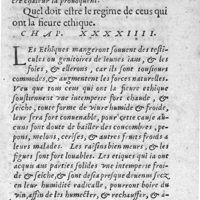 tre chaleur la prouoquent.
Quel doit estre le regime de ceus qui
ont la fieure ethique.
CHAP. XXXXIIII.
LEs Ethiques mangeront souuent des testi-
cules ou genitoires de ieunes iaus, & les
foies, & ellerons, car ils sont tousiours
commodes, & augmentent les forces naturelles.
Veu que tous ceus qui ont la fieure ethique
soustiennent vne intemperee fort chaude, &
seiche, toute forme de viure humide & froide,
leur sera fort conuenable, pour cette cause aucuns
font doute de bailler des concombres, pepons,
melons, cerises, & autres fruits froids a
leurs malades. Les raisins bien meurs, & les
figues sont fort louables. Les etiques qui ont
acquis aus parties solides vne intemperie froide
& seiche, & sont desia presque deuenus secs,
en leur humidité radicalle, pourront boire du
vin, affin de les humecter, & rechauffer, &